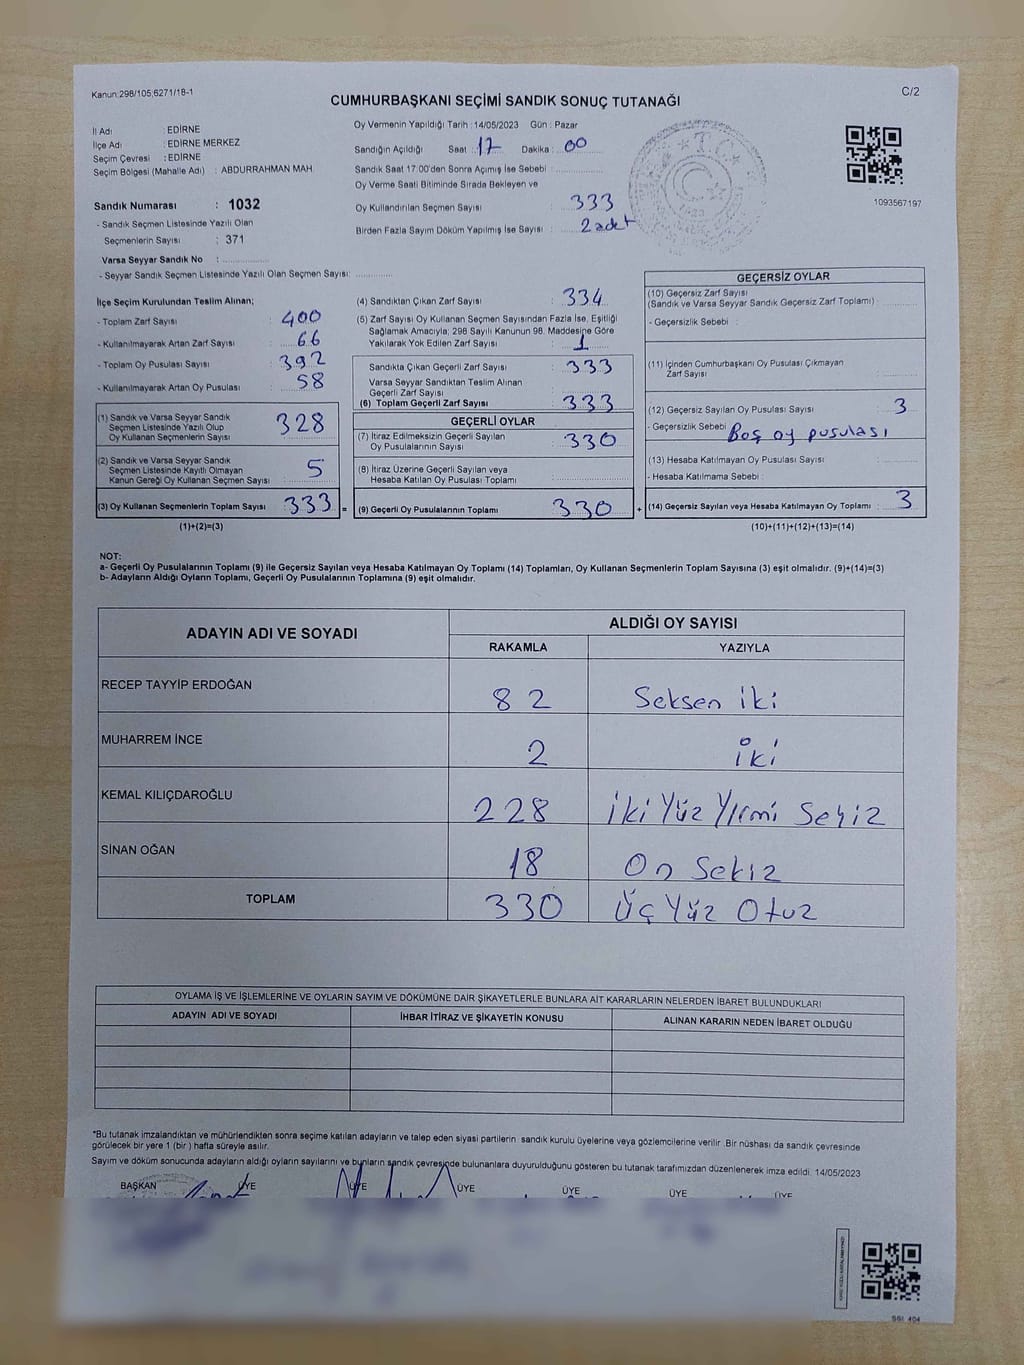 Kanun:298/105;6271/18-1
C/2
CUMHURBAŞKANI SEÇİMİ SANDIK SONUÇ TUTANAĞI
İl Adı : EDİRNE
İlçe Adı : EDİRNE MERKEZ
Seçim Çevresi : EDİRNE
Seçim Bölgesi (Mahalle Adı) : ABDURRAHMAN MAH
Sandık Numarası : 1032
- Sandık Seçmen Listesinde Yazılı Olan
Seçmenlerin Sayısı : 371
Varsa Seyyar Sandık No :
- Seyyar Sandık Seçmen Listesinde Yazılı Olan Seçmen Sayısı:
Oy Vermenin Yapıldığı Tarih : 14/05/2023 Gün : Pazar
Sandığın Açıldığı Saat : 17 Dakika : 00
Sandık Saat 17:00'den Sonra Açımış İse Sebebi
Oy Verme Saati Bitiminde Sırada Bekleyen ve
Oy Kullandırılan Seçmen Sayısı : 333
Birden Fazla Sayım Döküm Yapılmış İse Sayısı : 2 adet
T.C.
1093567197
İlçe Seçim Kurulundan Teslim Alınan;
- Toplam Zarf Sayısı : 400
- Kullanılmayarak Artan Zarf Sayısı : 66
- Toplam Oy Pusulası Sayısı : 392
- Kullanılmayarak Artan Oy Pusulası : 58
(1) Sandık ve Varsa Seyyar Sandık
Seçmen Listesinde Yazılı Olup
Oy Kullanan Seçmenlerin Sayısı 328
(2) Sandık ve Varsa Seyyar Sandık
Seçmen Listesinde Kayıtlı Olmayan
Kanun Gereği Oy Kullanan Seçmen Sayısı 5
(3) Oy Kullanan Seçmenlerin Toplam Sayısı : 333 =
(1)+(2)=(3)
(4) Sandıktan Çıkan Zarf Sayısı : 334
(5) Zarf Sayısı Oy Kullanan Seçmen Sayısından Fazla İse, Eşitliği
Sağlamak Amacıyla; 298 Sayılı Kanunun 98. Maddesine Göre
Yakılarak Yok Edilen Zarf Sayısı : 1
Sandıkta Çıkan Geçerli Zarf Sayısı : 333
Varsa Seyyar Sandıktan Teslim Alınan
Geçerli Zarf Sayısı
(6) Toplam Geçerli Zarf Sayısı : 333
GEÇERLİ OYLAR
(7) İtiraz Edilmeksizin Geçerli Sayılan
Oy Pusulasının Sayısı : 330
(8) İtiraz Üzerine Geçerli Sayılan veya
Hesaba Katılan Oy Pusulası Toplamı :
(9) Geçerli Oy Pusulalarının Toplamı : 330 +
GEÇERSİZ OYLAR
(10) Geçersiz Zarf Sayısı
(Sandık ve Varsa Seyyar Sandık Geçersiz Zarf Toplamı) :
- Geçersizlik Sebebi :
(11) İçinden Cumhurbaşkanı Oy Pusulası Çıkmayan
Zarf Sayısı :
(12) Geçersiz Sayılan Oy Pusulası Sayısı : 3
- Geçersizlik Sebebi Boş oy pusulası
(13) Hesaba Katılmayan Oy Pusulası Sayısı :
- Hesaba Katılmama Sebebi :
(14) Geçersiz Sayılan veya Hesaba Katılmayan Oy Toplamı : 3
(10)+(11)+(12)+(13)=(14)
NOT:
a- Geçerli Oy Pusulalarının Toplamı (9) ile Geçersiz Sayılan veya Hesaba Katılmayan Oy Toplamı (14) Toplamları, Oy Kullanan Seçmenlerin Toplam Sayısına (3) eşit olmalıdır. (9)+(14)=(3)
b- Adayların Aldığı Oyların Toplamı, Geçerli Oy Pusulalarının Toplamına (9) eşit olmalıdır.
ADAYIN ADI VE SOYADI
ALDIĞI OY SAYISI
RAKAMLA YAZIYLA
RECEP TAYYİP ERDOĞAN 82 Seksen iki
MUHARREM İNCE 2 iki
KEMAL KILIÇDAROĞLU 228 iki Yüz Yirmi Sekiz
SİNAN OĞAN 18 On Sekiz
TOPLAM 330 Üç Yüz Otuz
OYLAMA İŞ VE İŞLEMLERİNE VE OYLARIN SAYIM VE DÖKÜMÜNE DAİR ŞİKAYETLERLE BUNLARA AİT KARARLARIN NELERDEN İBARET BULUNDUKLARI
ADAYIN ADI VE SOYADI İHBAR İTİRAZ VE ŞİKAYETİN KONUSU ALINAN KARARIN NEDEN İBARET OLDUĞU
*Bu tutanak imzalandıktan ve mühürlendikten sonra seçime katılan adayların ve talep eden siyasi partilerin sandık kurulu üyelerine veya gözlemcilerine verilir .Bir nüshası da sandık çevresinde
görülecek bir yere 1 (bir ) hafta süreyle asılır.
Sayım ve döküm sonucunda adayların aldığı oyların sayılarını ve bunların sandık çevresinde bulunanlara duyurulduğunu gösteren bu tutanak tarafımızdan düzenlenerek imza edildi. 14/05/2023
BAŞKAN ÜYE ÜYE ÜYE ÜYE ÜYE ÜYE